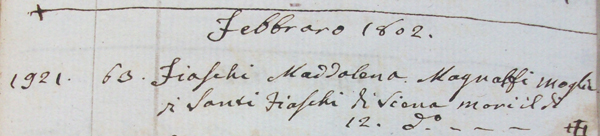 Febbraro 1802.
1921. 63. Fiaschi Maddalena Magnalfi moglie
di Santi Fiaschi di Siena morì il dì
12. do